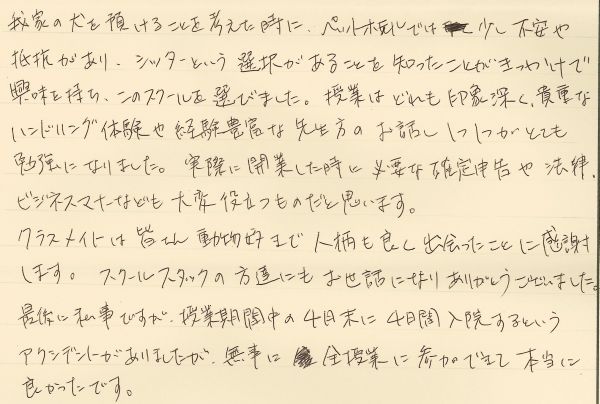 我家の犬を預けることを考えた時に、ペットホテルでは少し不安や
抵抗があり、シッターという選択があることを知ったことがきっかけで
興味を持ち、このスクールを選びました。授業はどれも印象深く、貴重な
ハンドリング体験や経験豊富な先生方のお話し1つ1つがとても
勉強になりました。実際に開業した時に必要な確定申告や法律、
ビジネスマナーなども大変役立つものだと思います。
クラスメイトは皆さん動物好きで人柄も良く出会ったことに感謝
します。スクールスタッフの方達にもお世話になりありがとうございました。
最後に私事ですが、授業期間中の4月末に4日間入院するという
アクシデントがありましたが、無事に全授業に参加できて本当に
良かったです。